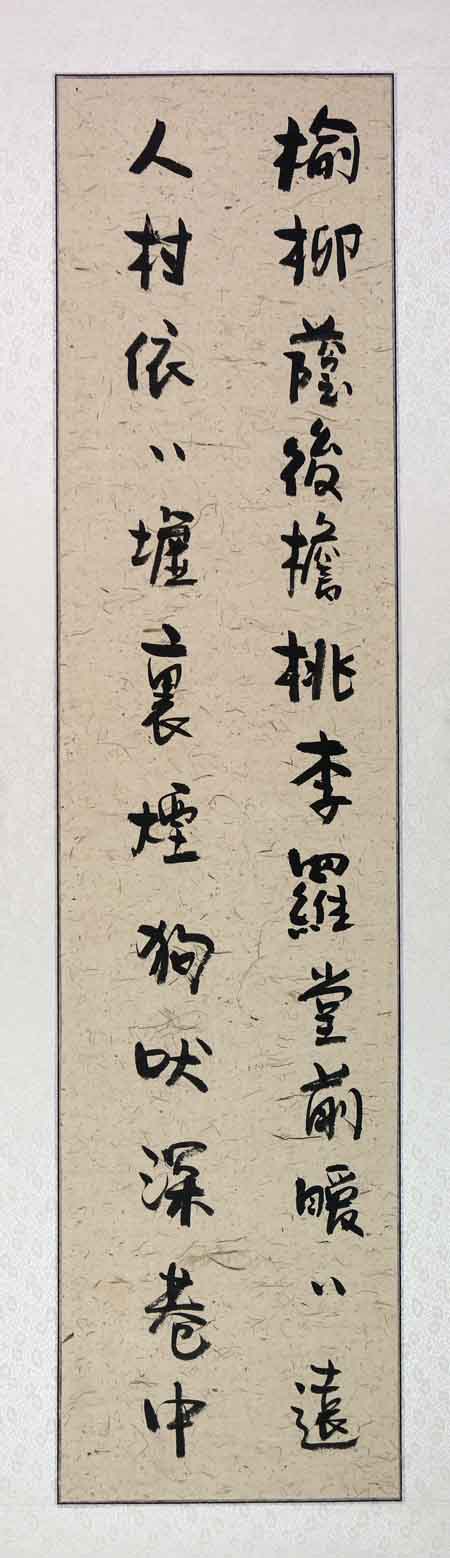 榆柳蔭後檐桃李羅堂前曖〻遠
人村依〻墟裏煙狗吠深巷中